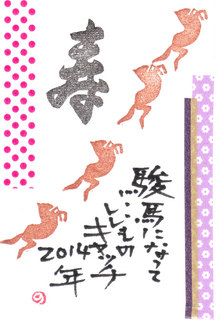 寿
駿馬になって
いいもの
キャッチ
2014
年